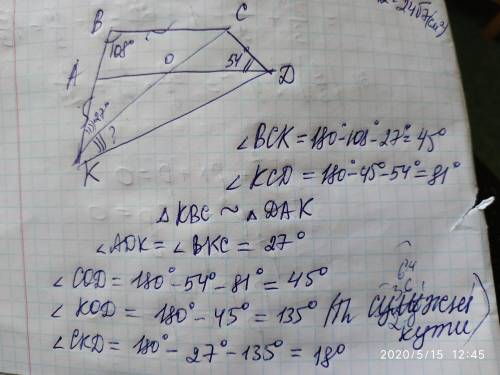 B
C
108°
A
O
54°
D
?
K
∠BCK = 180°-108°-27° = 45°
∠KCD = 180°-45°-54° = 81°
△KBC ~ △DAK
∠ADK = ∠BKC = 27°
∠COD = 180°-54°-81° = 45°
∠KOD = 180°-45° = 135° (Th суміжні
кути)
∠CKD = 180°-27°-135° = 18°
2020/5/15 12:45